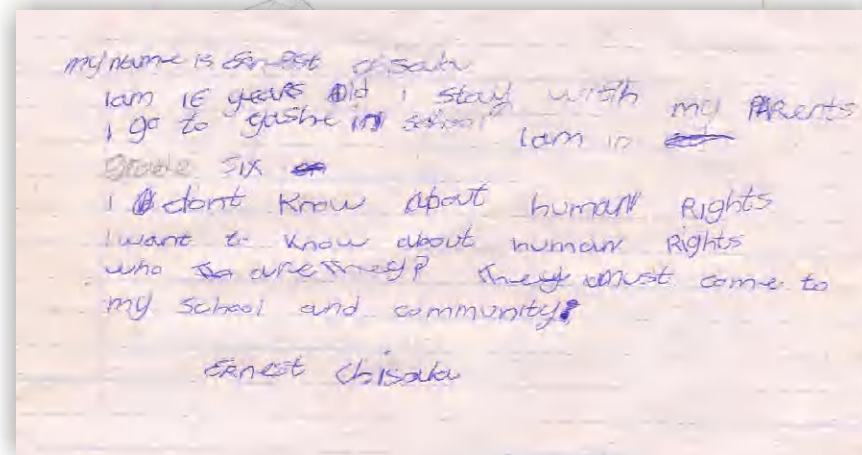 my name is Ernest Chisala
I am 16 years old i stay with my PARents
i go to in school I am in
Grade SIX
I dont know about human Rights
I want to know about human Rights
who are they? they must come to
my school and community?
ERnest Chisala